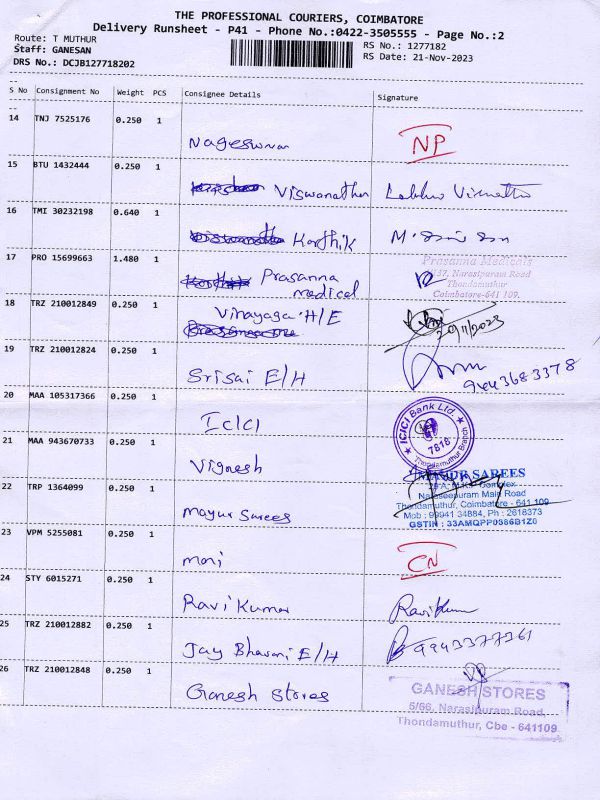 THE PROFESSIONAL COURIERS, COIMBATORE
Delivery Runsheet - P41 - Phone No.:0422-3505555 - Page No.:2
Route: T MUTHUR
RS No.: 1277182
Staff: GANESAN
RS Date: 21-Nov-2023
DRS No.: DCJB127718202
S No Consignment No Weight PCS Consignee Details Signature
14 TNJ 7525176 0.250 1
Nageswaran NP
15 BTU 1432444 0.250 1
Viswanathan
16 TMI 30232198 0.640 1
Karthik
17 PRO 15699663 1.480 1
Prasanna medical
Prasanna Medicals
137, Narasipuram Road
Thondamuthur
Coimbatore-641 109.
18 TRZ 210012849 0.250 1
Vinayaga H/E
20/11/2023
19 TRZ 210012824 0.250 1
Srisai E/H
9443683378
20 MAA 105317366 0.250 1
ICICI
ICICI Bank Ltd.
7818
Thondamuthur Branch
21 MAA 943670733 0.250 1
Vignesh
22 TRP 1364099 0.250 1
Mayur Sarees
MAYUR SAREES
Complex
Naraseepuram Main Road
Thondamuthur, Coimbatore - 641 109
Mob : 99941 34884, Ph : 2618373
GSTIN : 33AMQPP0386B1Z0
23 VPM 5255081 0.250 1
mani CN
24 STY 6015271 0.250 1
Ravi Kumar Ravikumar
25 TRZ 210012882 0.250 1
Jay Bhavani E/H 9943377361
26 TRZ 210012848 0.250 1
Ganesh Stores
GANESH STORES
5/66, Narasipuram Road,
Thondamuthur, Cbe - 641109